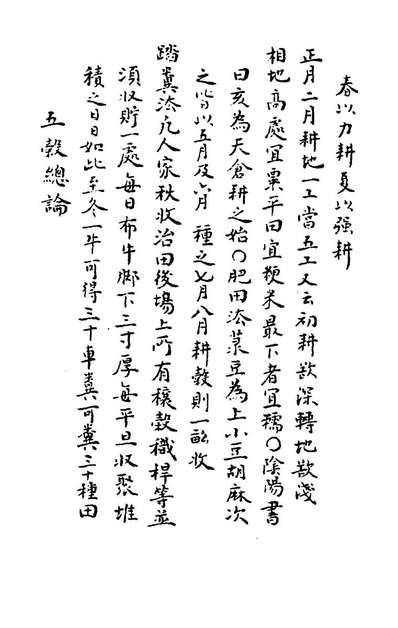 春以力耕夏以强耕
正月二月耕地一工當五工又云初耕欲深轉地欲淺
相地高處宜粟平田宜粳米最下者宜稬〇陰陽書
曰亥為天倉耕之始〇肥田法菉豆為上小豆胡麻次
之皆以五月及六月種之七月八月耕穀則一畝收
踏糞法凡人家秋收治田後塲上所有穰穀樴稈等並
湏收貯一處每日布牛脚下三寸厚每平旦收聚堆
積之日日如此至冬一牛可得三十車糞可糞三十種田
五穀總論